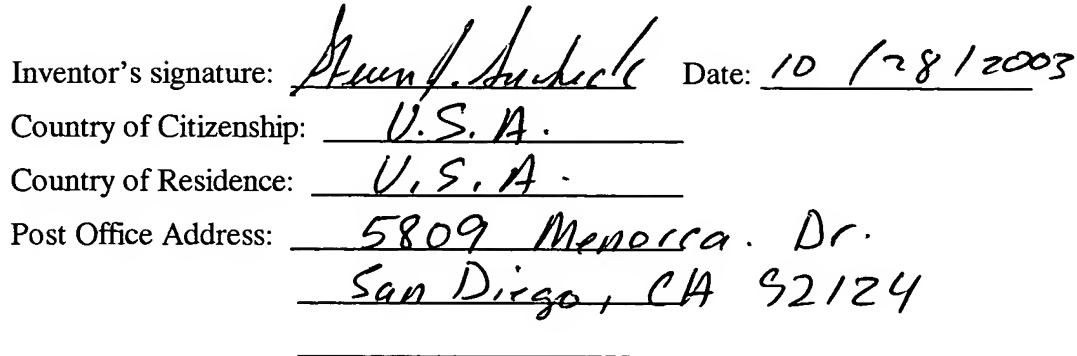 Inventor's signature: Steven J. Sucheck Date: 10 / 28 / 2003
Country of Citizenship: U.S.A.
Country of Residence: U.S.A.
Post Office Address: 5809 Menorca. Dr.
San Diego, CA 92124